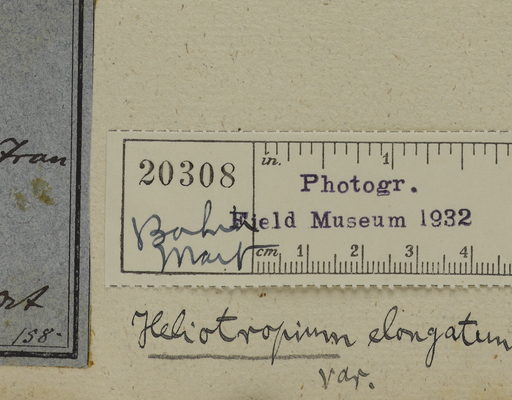 Fran
158-
20308
in. 1
Photogr.
Field Museum 1932
Bahia
Mart
cm 1 2 3 4
Heliotropium elongatum
var.